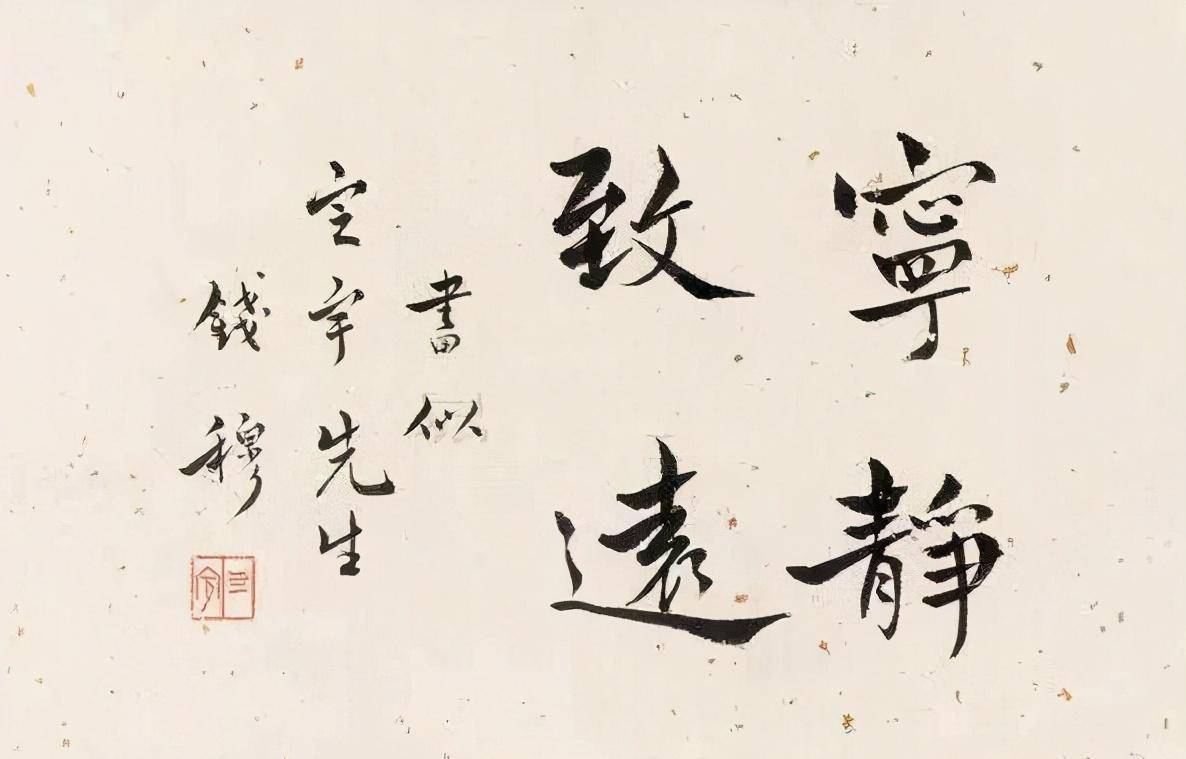 寧靜
致遠
書似
定宇先生
錢穆